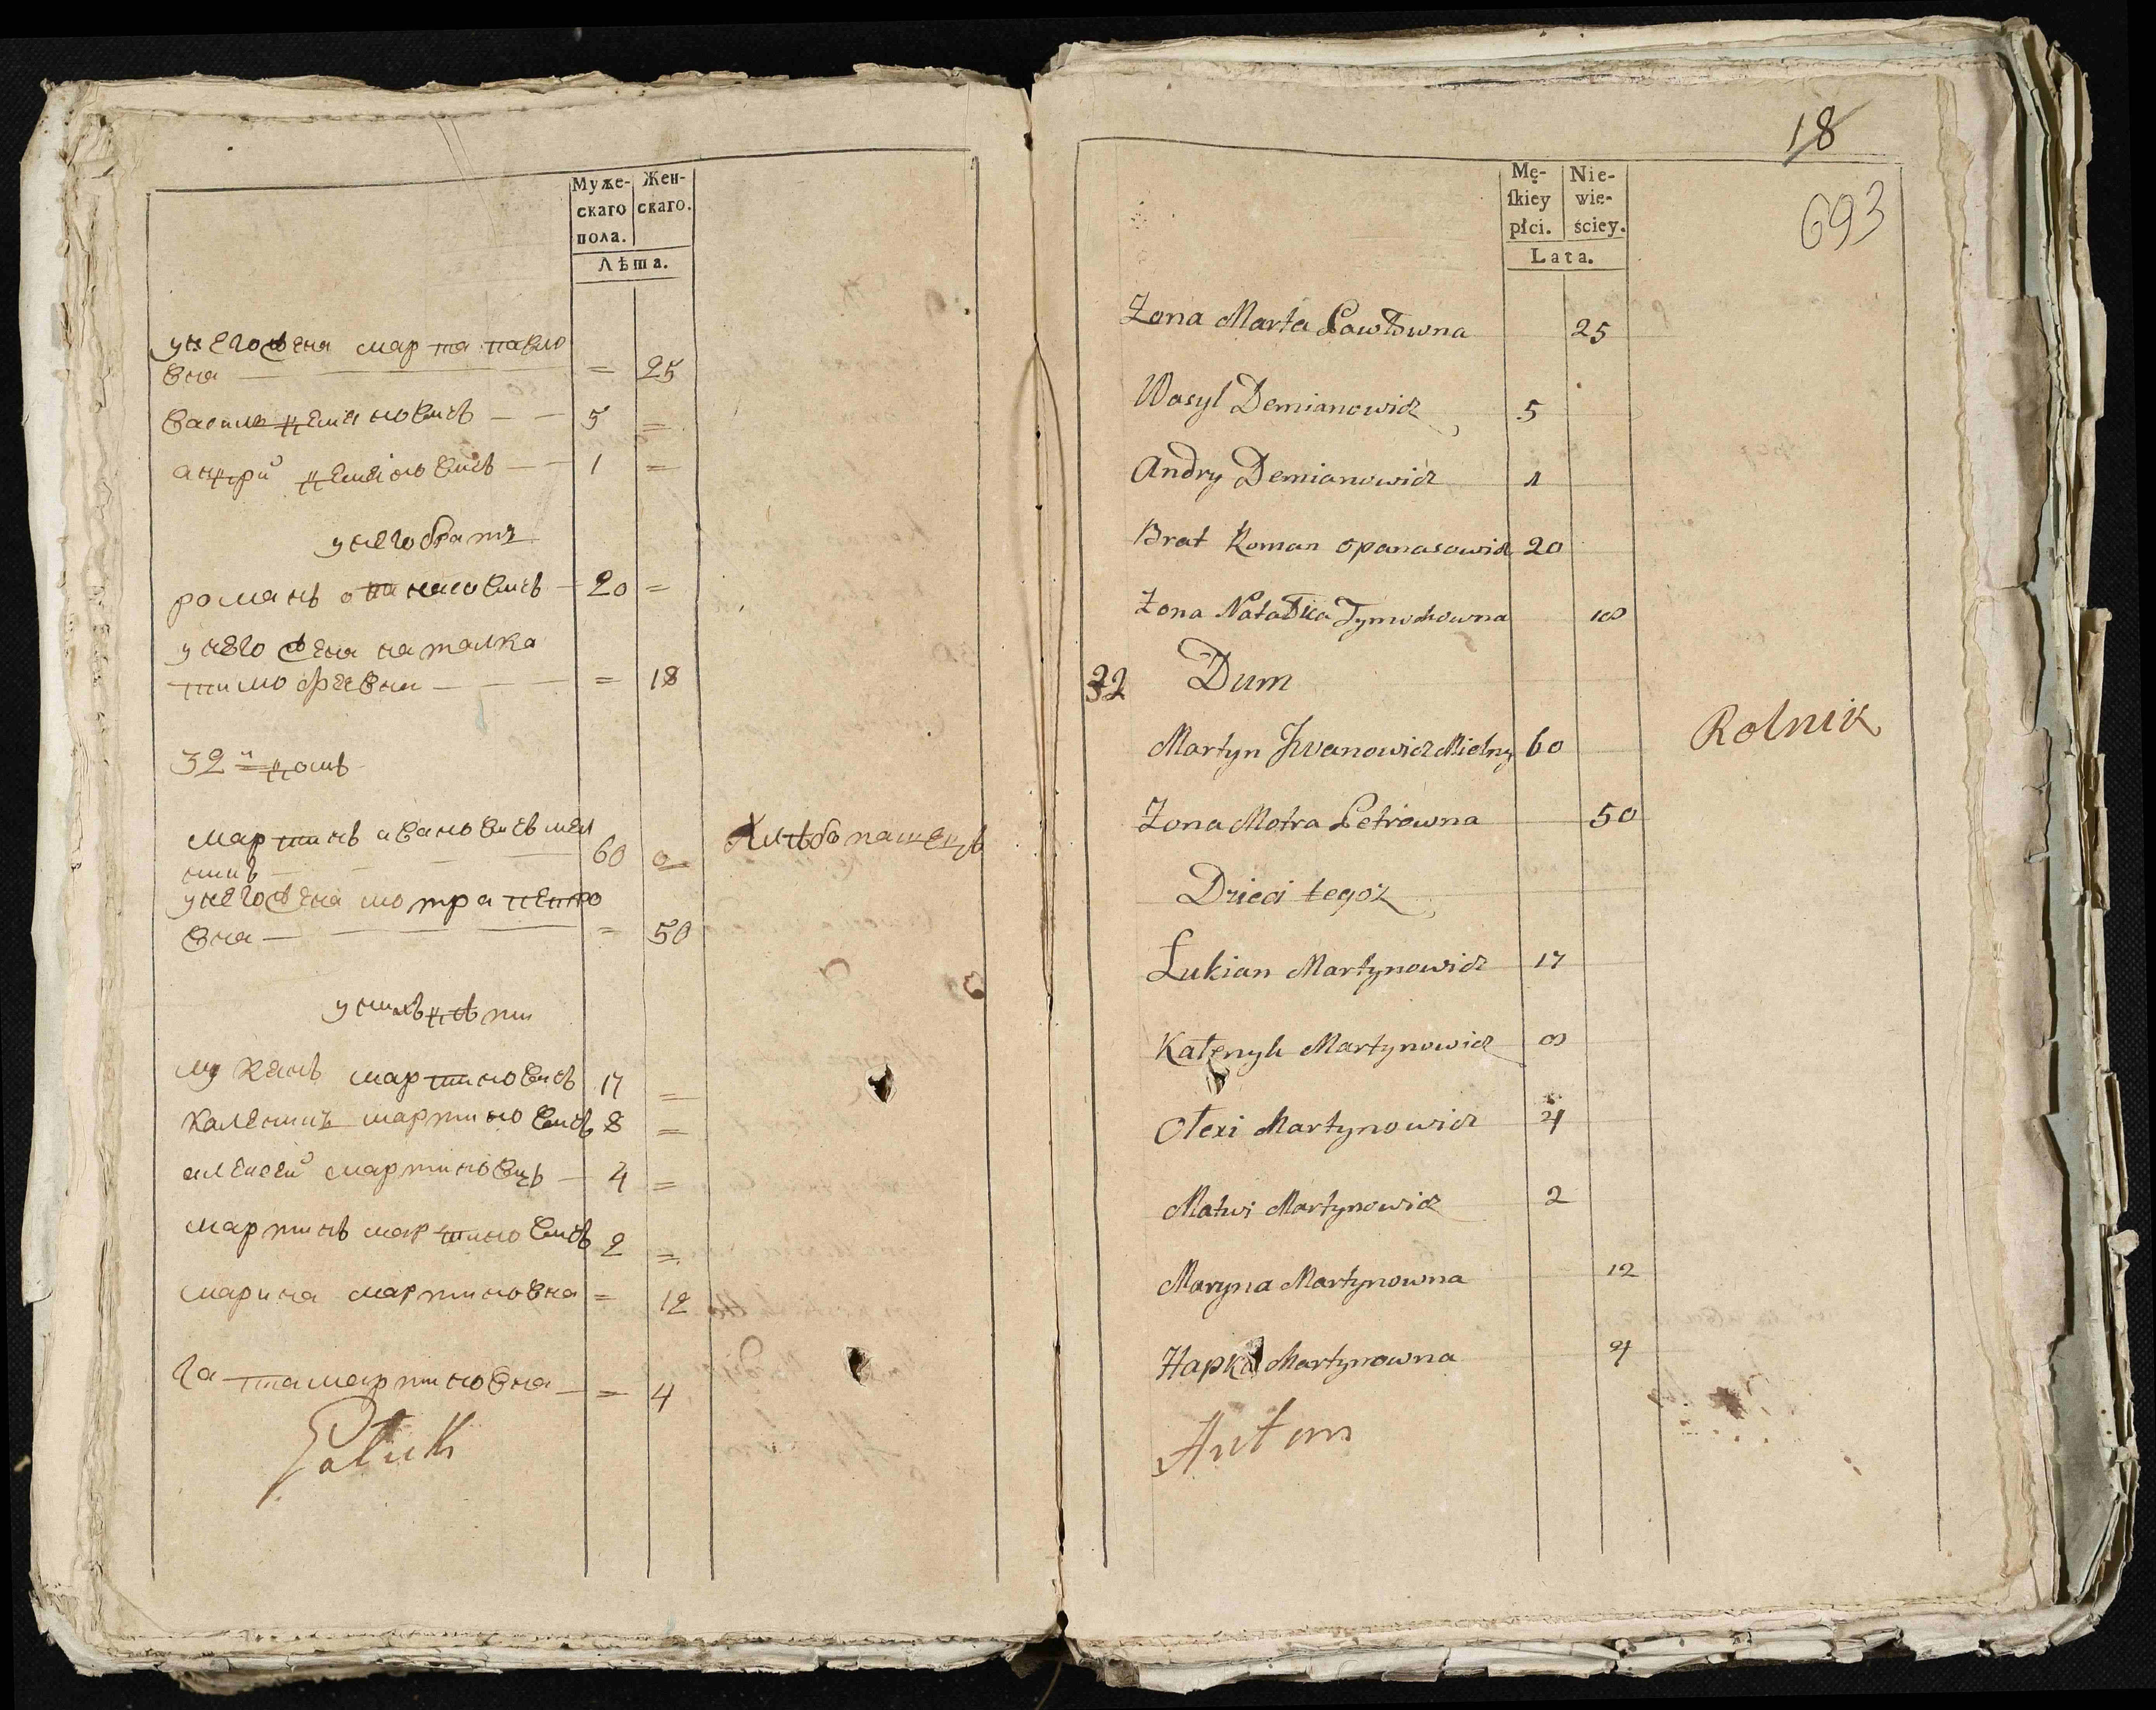 Муже-
скаго
пола.
Жен-
скаго.
Лѣта.
унего жена марта павло
вна — = 25
василь демяновичь — 5 =
андрий демяновичь — 1 =
унего братъ
романъ опанасовичь — 20 =
унего жена наталка
тимофревни — = 18
32й домъ
мартинъ ивановичь мел
никъ — 60 0 Хлѣбопашецъ
унего жена мотра петро
вна — = 50
унихъ дѣти
лукянъ мартиновичь 17 =
каленикъ мартиновичь 8 =
алексей мартиновичь — 4 =
мартинъ мартиновичь 2 =
марина мартиновна = 12
гапта мартиновна — = 4
18
693
Mę-
ſkiey
płci.
Nie-
wie-
ściey.
Lata.
Zona Marta Pawłowna 25
Wasyl Demianowicz 5
Andry Demianowicz 1
Brat Roman Opanasowicz 20
Zona Natałka Tymochowna 18
32 Dum
Martyn Jwanowicz Mielny 60 Rolnik
Zona Motra Petrowna 50
Dzieci tegoż
Łukian Martynowicz 17
Kałenyk Martynowicz 8
Ołexi Martynowicz 4
Matwi Martynowicz 2
Maryna Martynowna 12
Hapka Martynowna 4
Antom